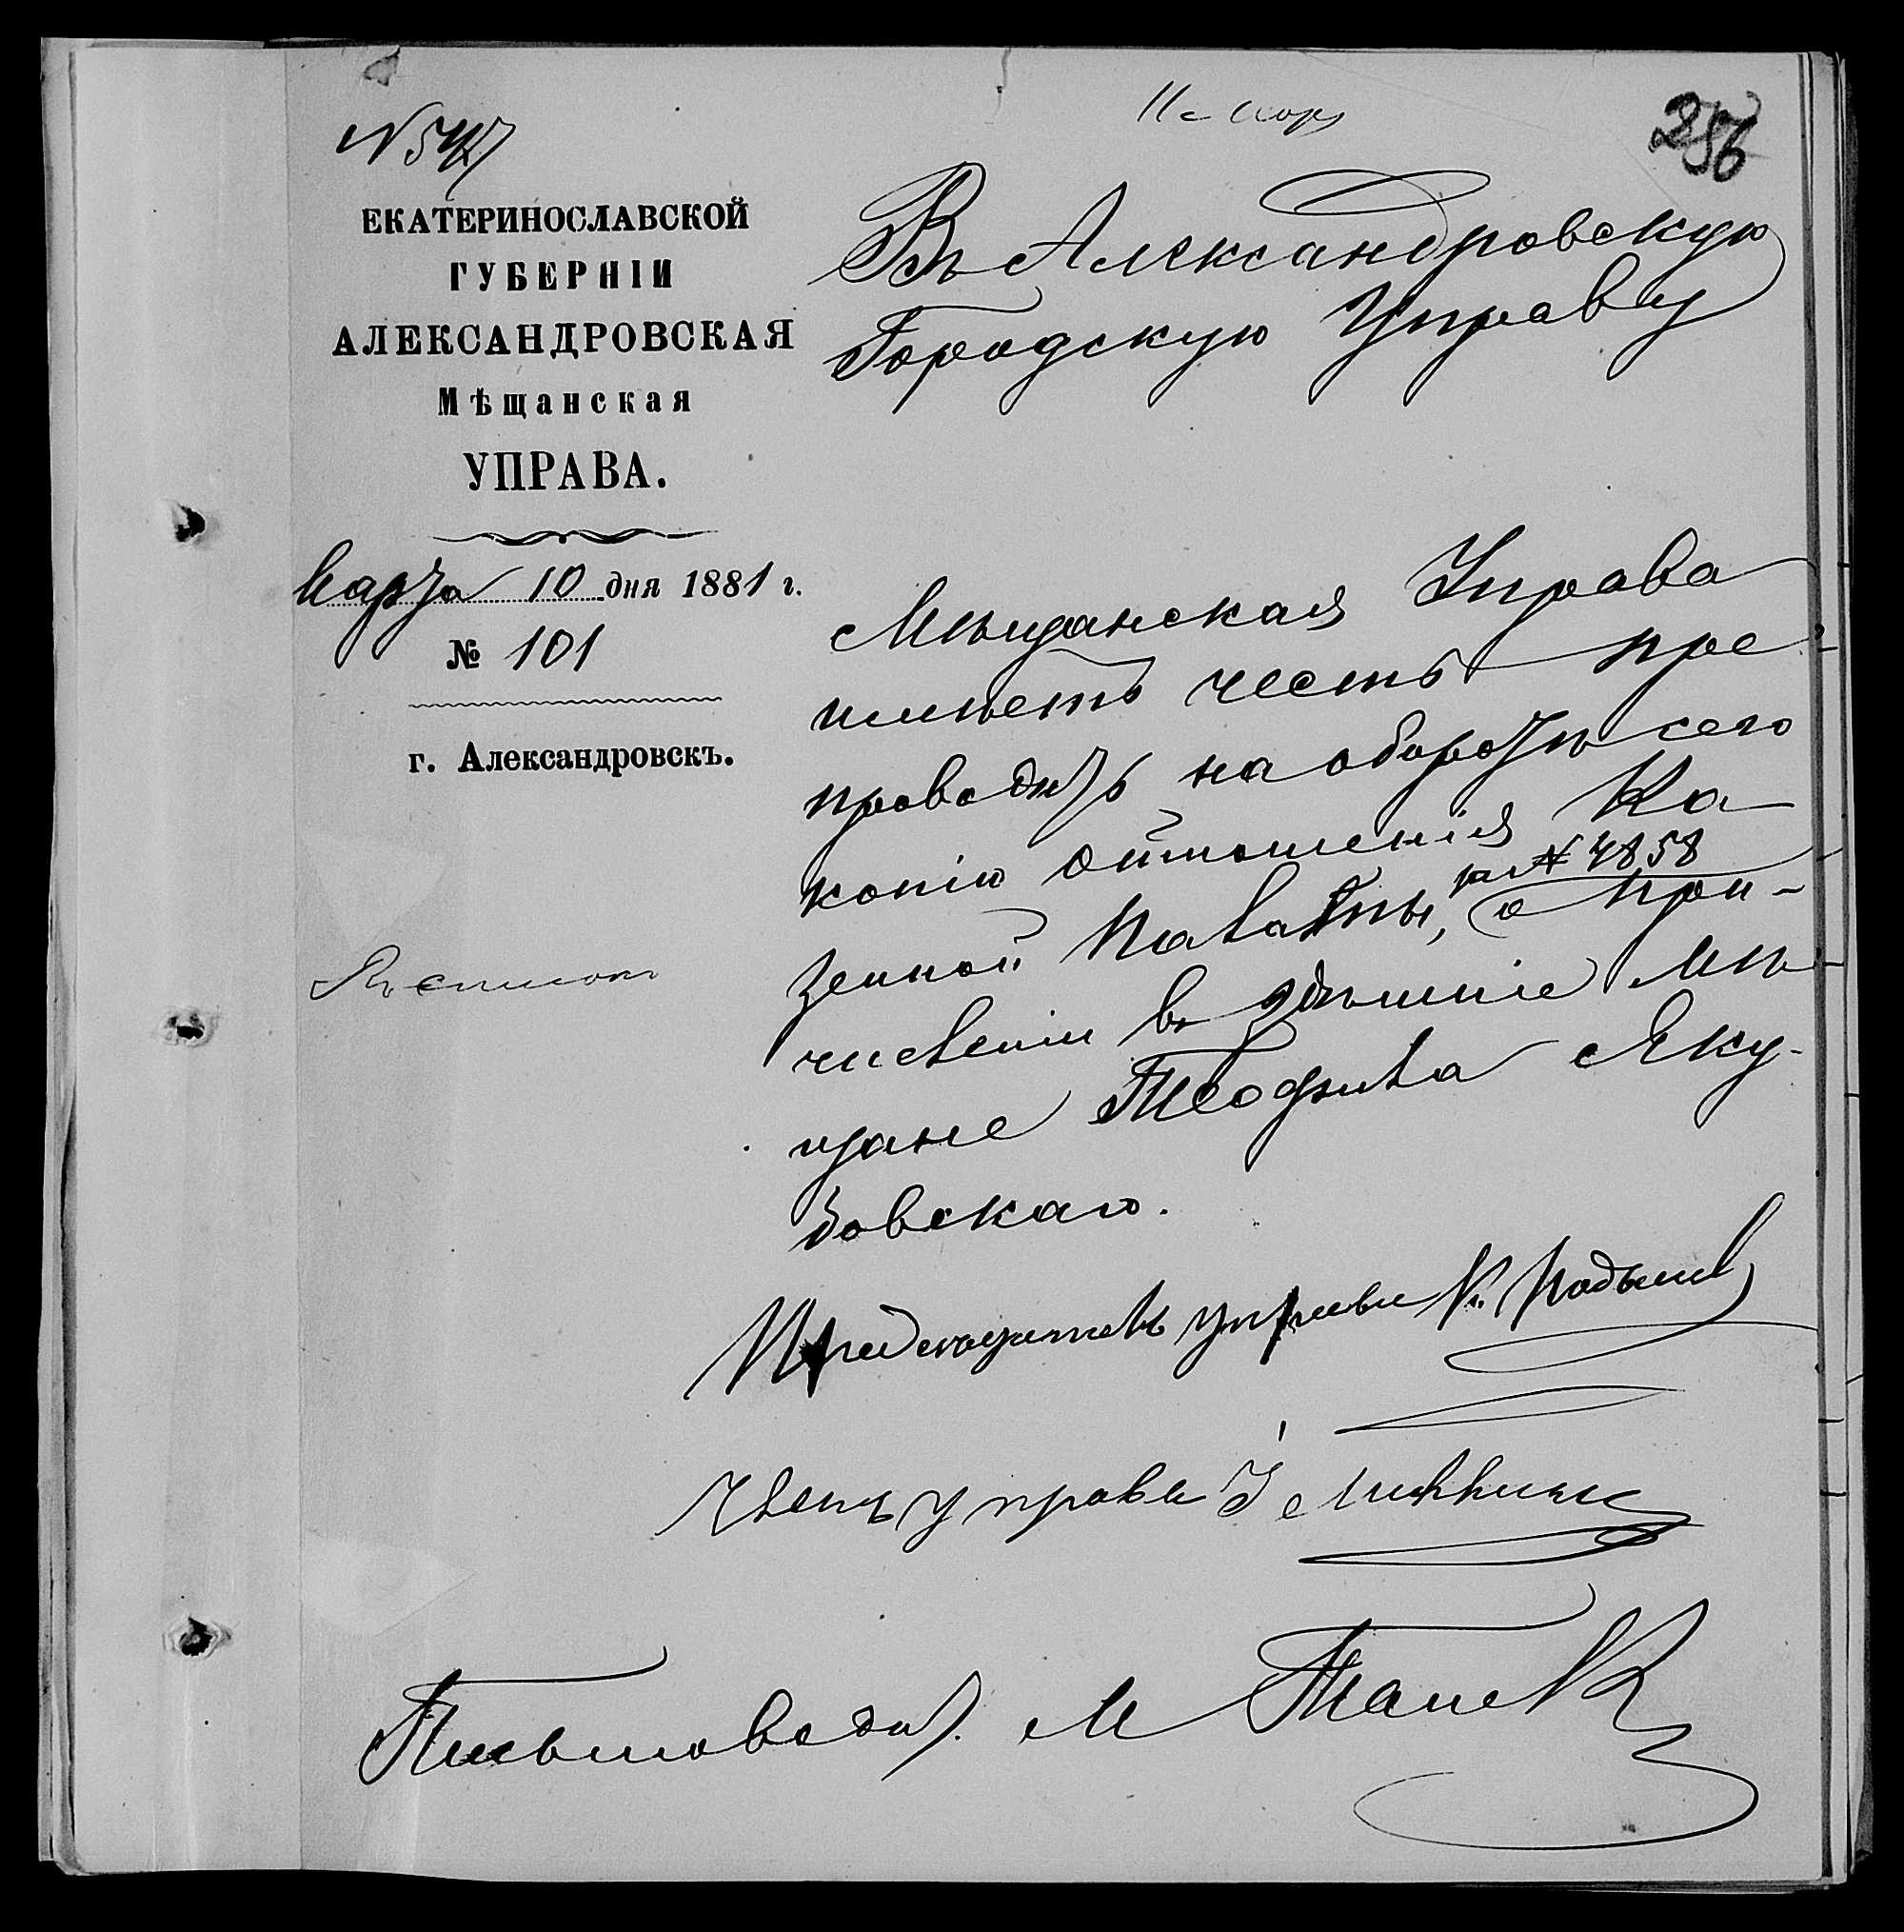 11 мар
256
№ 547
ЕКАТЕРИНОСЛАВСКОЙ
ГУБЕРНІИ
АЛЕКСАНДРОВСКАЯ
Мѣщанская
УПРАВА.
Марта 10 дня 1881 г.
№ 101
г. Александровскъ.
Въ Александровскую
Городскую Управу
Мѣщанская Управа
имѣетъ честь пре-
проводить на оборотѣ сего
копію отношенія Ка
зенной Палаты, за № 4858 о при-
численіи въ здѣшніе мѣ-
щане Теофила Яку-
бовскаго.
Предсѣдатель управы К.
Членъ управы І
Письмоводит. М